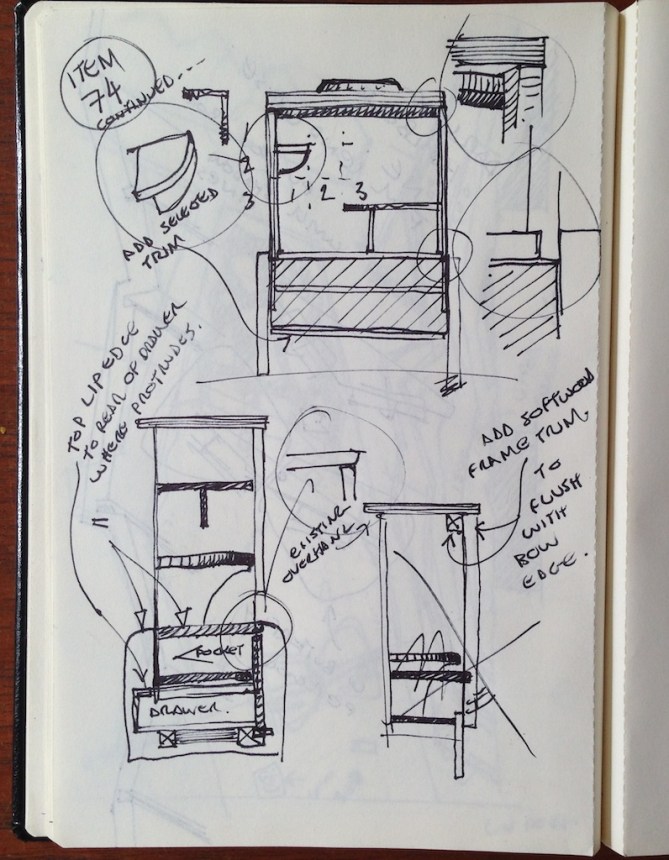 ITEM
74
CONTINUED...
1
2
3
2
3
ADD SELECTED
TRIM
TOP LIP EDGE
TO REAR OF DRAWER
WHERE PROTRUDES.
11
EXISTING
OVERHANG
ADD SOFTWOOD
FRAME TRIM.
TO
FLUSH
WITH
BOW
EDGE.
POCKET
DRAWER.